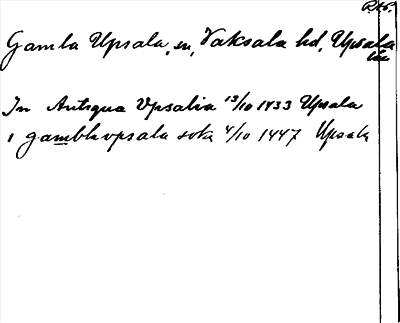 Gamla Upsala, sn, Vaksala hd, Upsala
län
In Antiqua Vpsalia 13/10 1433 Upsala
i gamblavpsala sokn 4/10 1447 Upsala